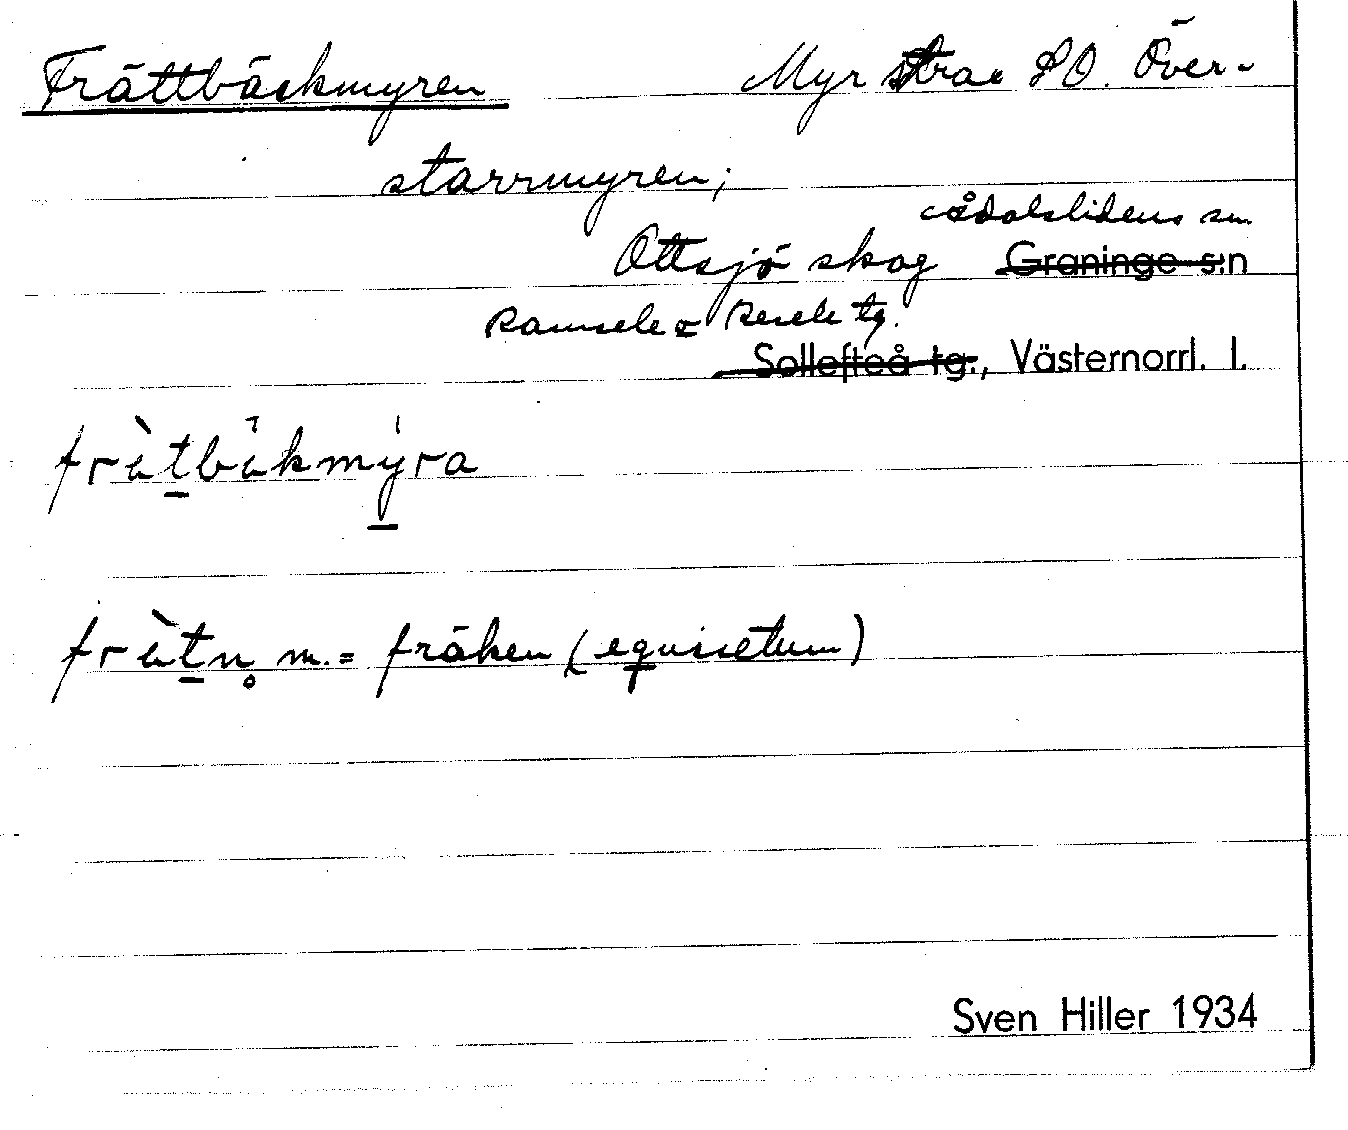 Frättbäckmyren Myr strax SO. Över-
starrmyren;
Ådalslidens sn
Ottsjö skog Graninge s:n
Ramsele o Resele tg.
Sollefteå tg., Västernorrl. l.
frätbäkmyra
frätn m. = fräken (equisetum)
Sven Hiller 1934